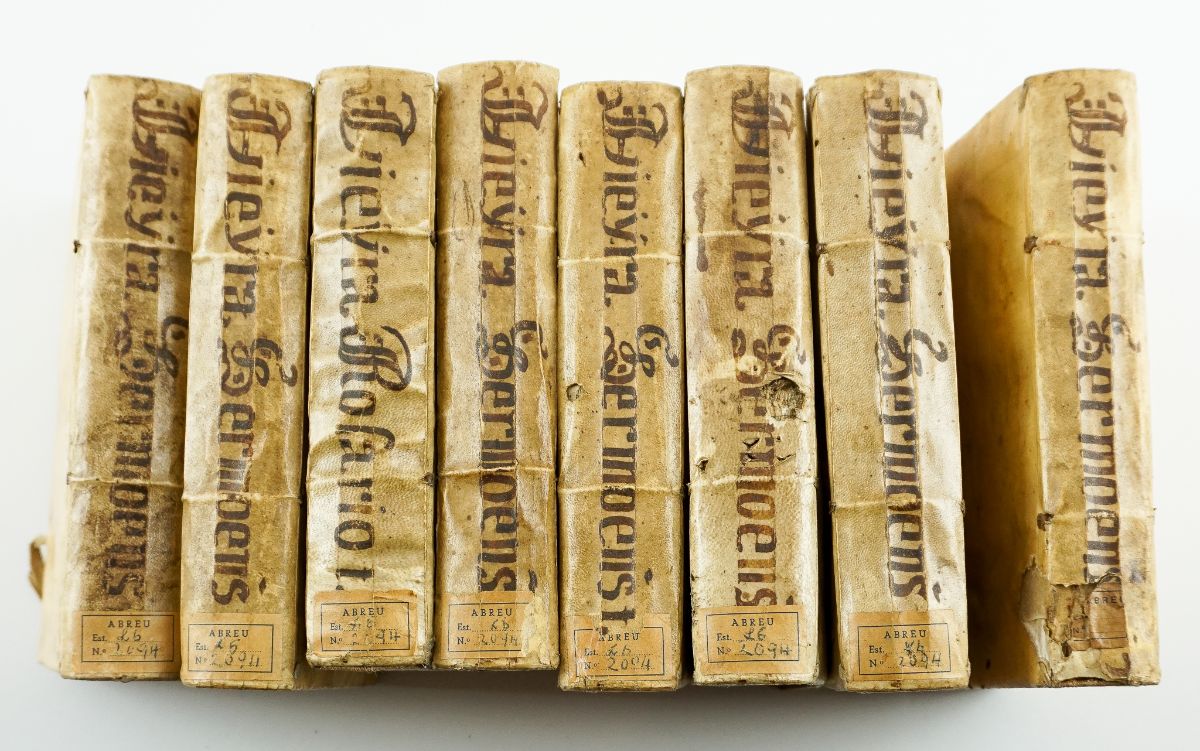 Vieyra. Sermoens
ABREU
Est. 26
N.º 2094
Vieyra. Sermoens
ABREU
Est. 26
N.º 2094
Vieyra Rosario
ABREU
Est. 26
N.º 2094
Vieyra. Sermoens
ABREU
Est. 26
N.º 2094
Vieyra. Sermoens
ABREU
Est. 26
N.º 2094
Vieyra. Sermoens
ABREU
Est. 26
N.º 2094
Vieyra. Sermoens
ABREU
Est. 26
N.º 2094
Vieyra. Sermoens
ABREU